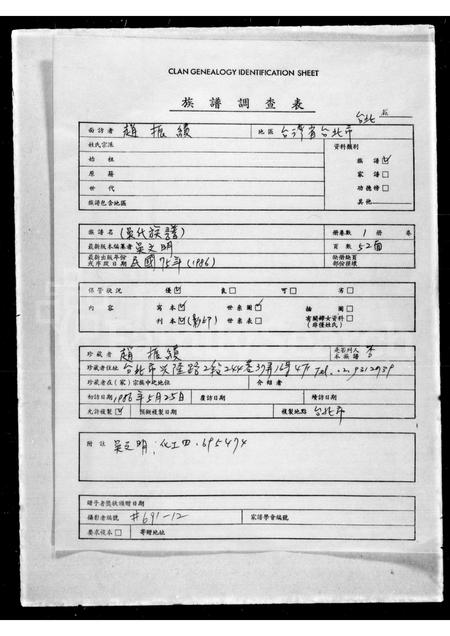 CLAN GENEALOGY IDENTIFICATION SHEET
族譜調查表
台北
面訪者 趙振績 地區 台灣省台北市
姓氏宗派 資料類別
始祖 族譜☑
原籍 家譜□
世代 功德榜□
族譜包含地區 其他
族譜名 (吳氏族譜) 冊卷數 1 冊 卷
最新版本編纂者 吳文明 頁數 52面
最新出版年份 缺冊缺頁
或序跋日期 民國75年(1986) 部份損壞
保管狀況 優☑ 良□ 可□ 劣□
內容 寫本☑ 世系圖☑ 插圖□
刊本☑(影印) 世系表□ 有關婦女資料□
(非僅姓氏)
珍藏者 趙振績 是否列入本族譜 否
珍藏者住址 台北市興隆路2段244巷37弄16號4F Tel. 02.9312939
珍藏者在(家)宗族中之地位 介紹者
初訪日期 1986年5月25日 覆訪日期 續訪日期
允許複製☑ 預擬複製日期 複製地點 台北市
附註 吳文明:化工四.695474
贈予者獎狀頒贈日期
攝影者編號 #691-12 家譜學會編號
要求複本□ 寄贈地址